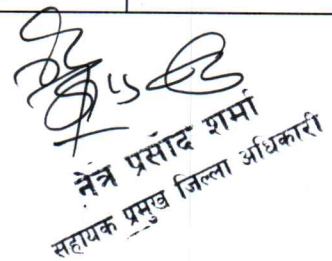 नेत्र प्रसाद शर्मा
सहायक प्रमुख जिल्ला अधिकारी